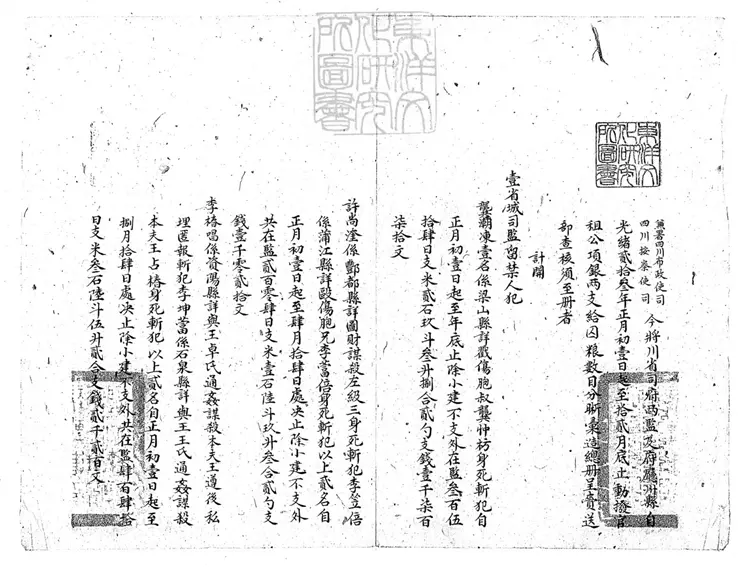 兼署四川布政使司
四川按察使司
今將川省司府兩監及府廳州縣自
光緒貳拾叁年正月初壹日起至拾貳月底止動撥官
租公項銀兩支給囚粮數目分晰彙造總册呈賫送
部查核須至册者
計開
壹省城司監留禁人犯
龔覇凍壹名係梁山縣詳戳傷胞叔龔艸枋身死斬犯自
正月初壹日起至年底止除小建不支外在監叁百伍
拾肆日支米貳石玖斗叁升捌合貳勺支錢壹千柒百
柒拾文
許尚瀅係酆都縣詳圖財謀殺左級三身死斬犯李登倍
係蒲江縣詳毆傷胞兄李萻倍身死斬犯以上貳名自
正月初壹日起至肆月拾肆日處决止除小建不支外
共在監貳百零肆日支米壹石陸斗玖升叁合貳勺支
錢壹千零貳拾文
李椿唱係資陽縣詳與王卓氏通姦謀殺本夫王道後私
埋匿報斬犯李坤萻係石泉縣詳與王王氏通姦謀殺
本夫王占椿身死斬犯以上貳名自正月初壹日起至
捌月拾肆日處决止除小建不支外共在監肆百肆拾
日支米叁石陸斗伍升貳合支錢貳千貳百文
東洋文化研究所圖書
東洋文化研究所圖書